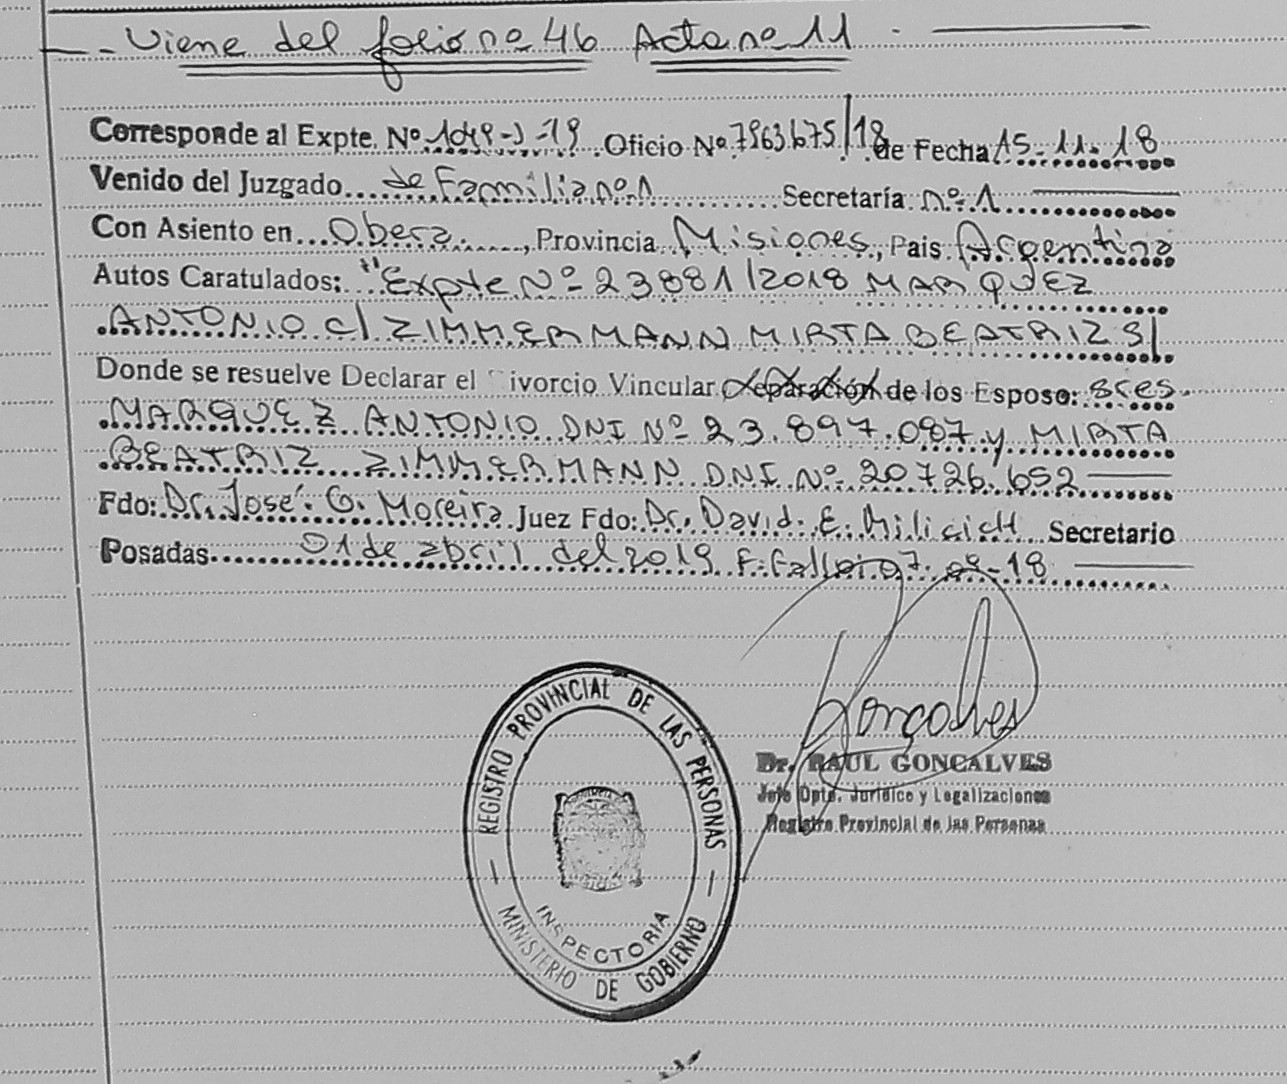 Viene del folio nº 46 Acta nº 11
Corresponde al Expte. Nº 1049-J-19 Oficio Nº 7963675/18 de Fecha 15-11-18
Venido del Juzgado de Familia nº 1 Secretaría nº 1
Con Asiento en Obera, Provincia Misiones, Pais Argentina
Autos Caratulados: "Expte Nº 23881/2018 MARQUEZ
ANTONIO c/ ZIMMERMANN MIRTA BEATRIZ S/
Donde se resuelve Declarar el ivorcio Vincular Separación de los Esposo: sres.
MARQUEZ ANTONIO DNI Nº 23.897.087 y MIRTA
BEATRIZ ZIMMERMANN DNI Nº 20726.652
Fdo: Dr. José G. Moreira Juez Fdo: Dr. David E. Milicich Secretario
Posadas 01 de abril del 2019 F. Fallo: 07-08-18
Gonçalves
Dr. RAUL GONCALVES
Jefe Dpto. Jurídico y Legalizaciones
Registro Provincial de las Personas
REGISTRO PROVINCIAL DE LAS PERSONAS
INSPECTORIA
MINISTERIO DE GOBIERNO